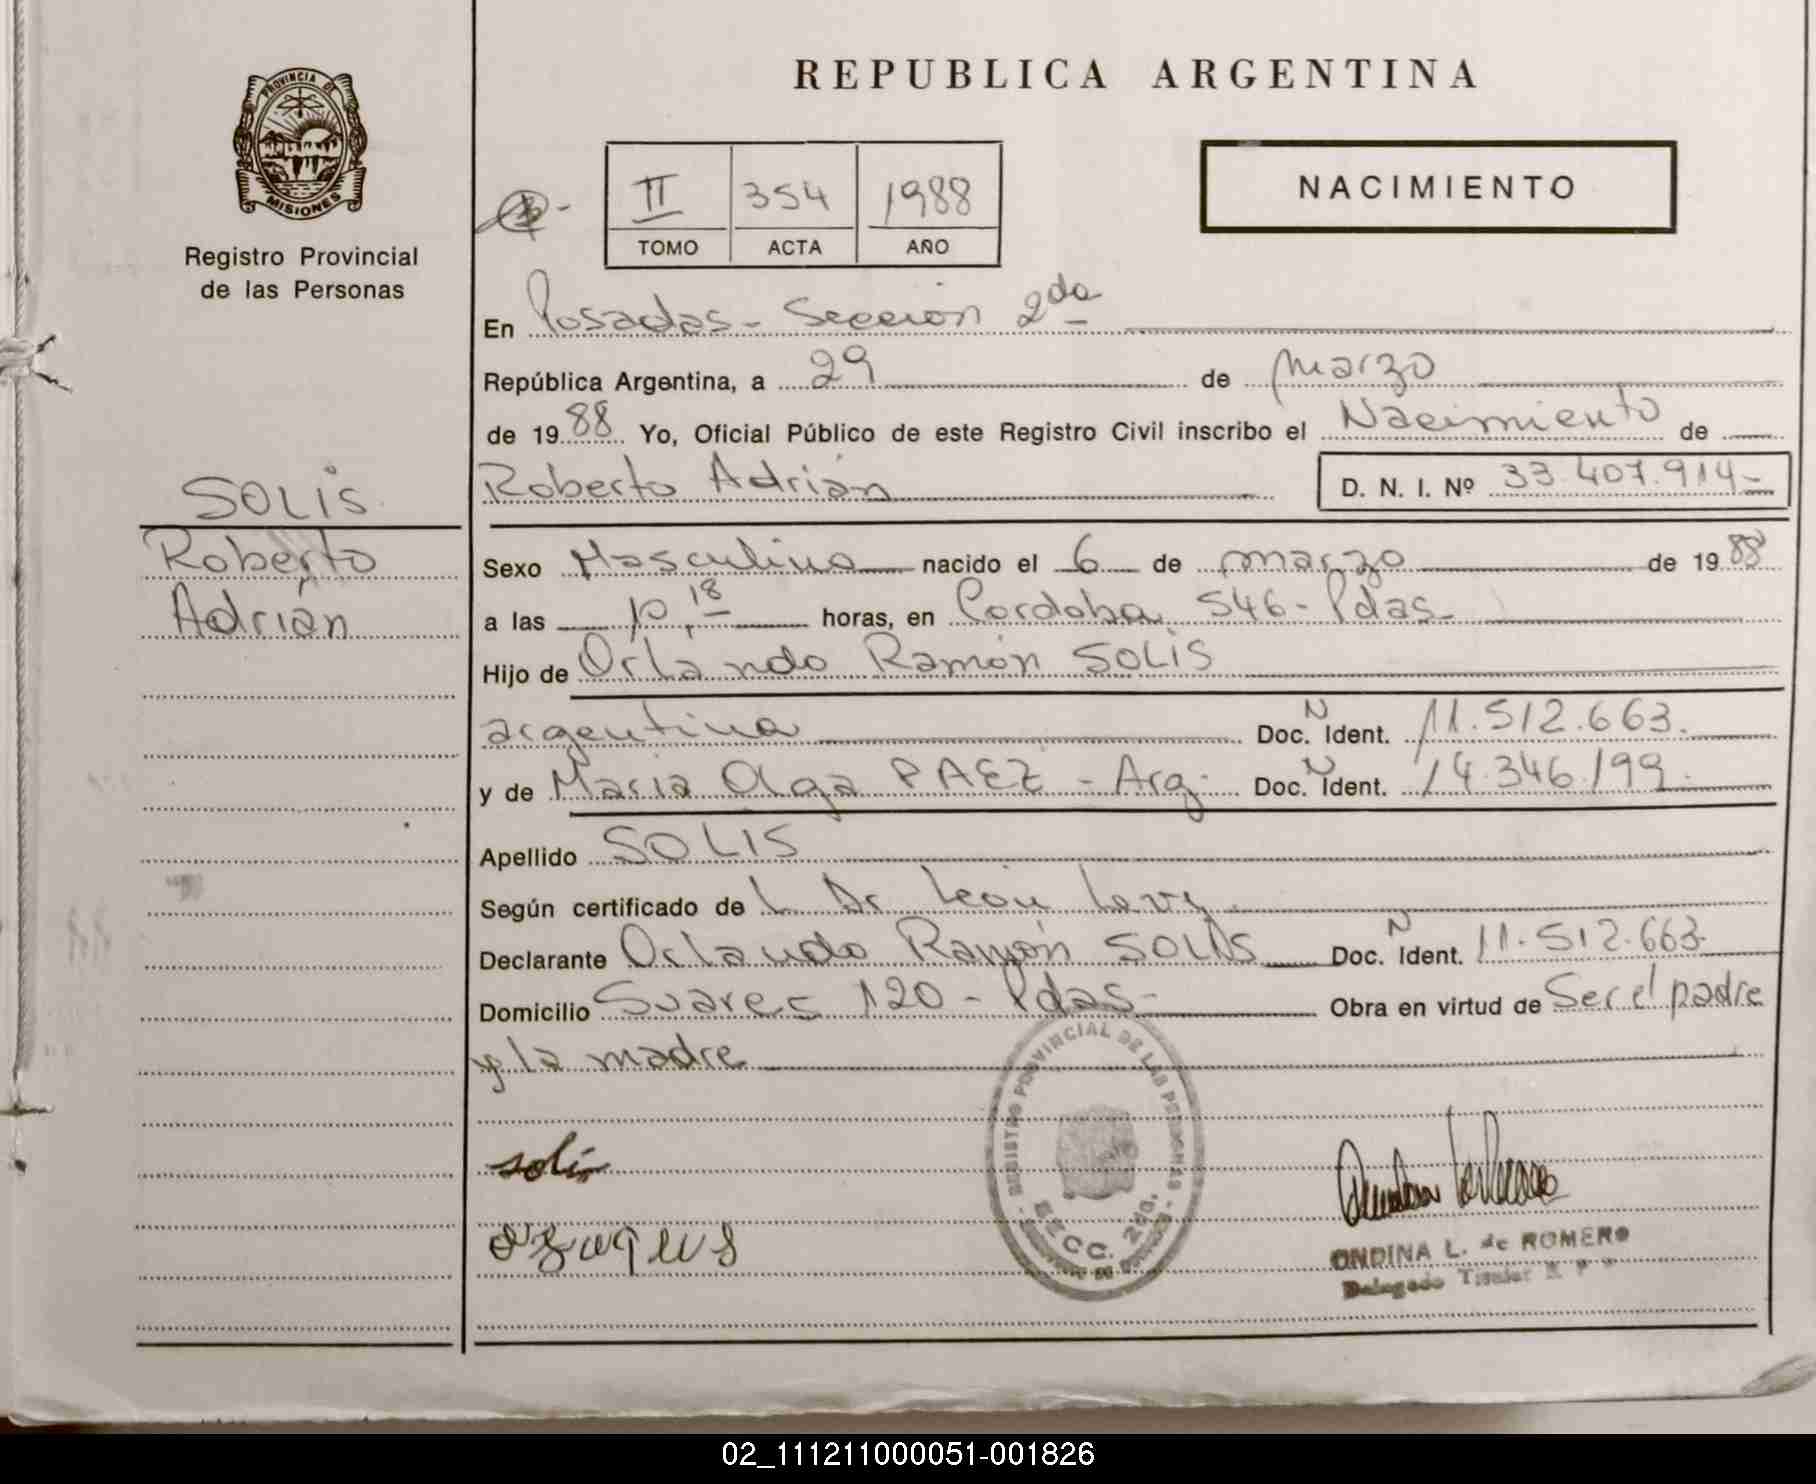 REPUBLICA ARGENTINA
PROVINCIA DE
MISIONES
Registro Provincial
de las Personas
II 354 1988
TOMO ACTA AÑO
NACIMIENTO
En Posadas - Sección 2da
República Argentina, a 29 de marzo
de 1988 Yo, Oficial Público de este Registro Civil inscribo el Nacimiento de
Roberto Adrián D. N. I. Nº 33.407.914-
SOLIS
Roberto
Adrián
Sexo Masculino nacido el 6 de marzo de 1988
a las 10,18 horas, en Cordoba 546 - Pdas-
Hijo de Orlando Ramón SOLIS
argentina Doc. N Ident. 11.512.663.
y de Maria Olga PAEZ - Arg. Doc. N Ident. 14.346.199.
Apellido SOLIS
Según certificado de L Dr León Levy
Declarante Orlando Ramón SOLIS Doc. N Ident. 11.512.663.
Domicilio Suarez 120 - Pdas- Obra en virtud de Ser el padre
y la madre
REGISTRO PROVINCIAL DE LAS PERSONAS
SECC. 2da.
solis
ONDINA L. de ROMERO
Delegado Titular
02_111211000051-001826